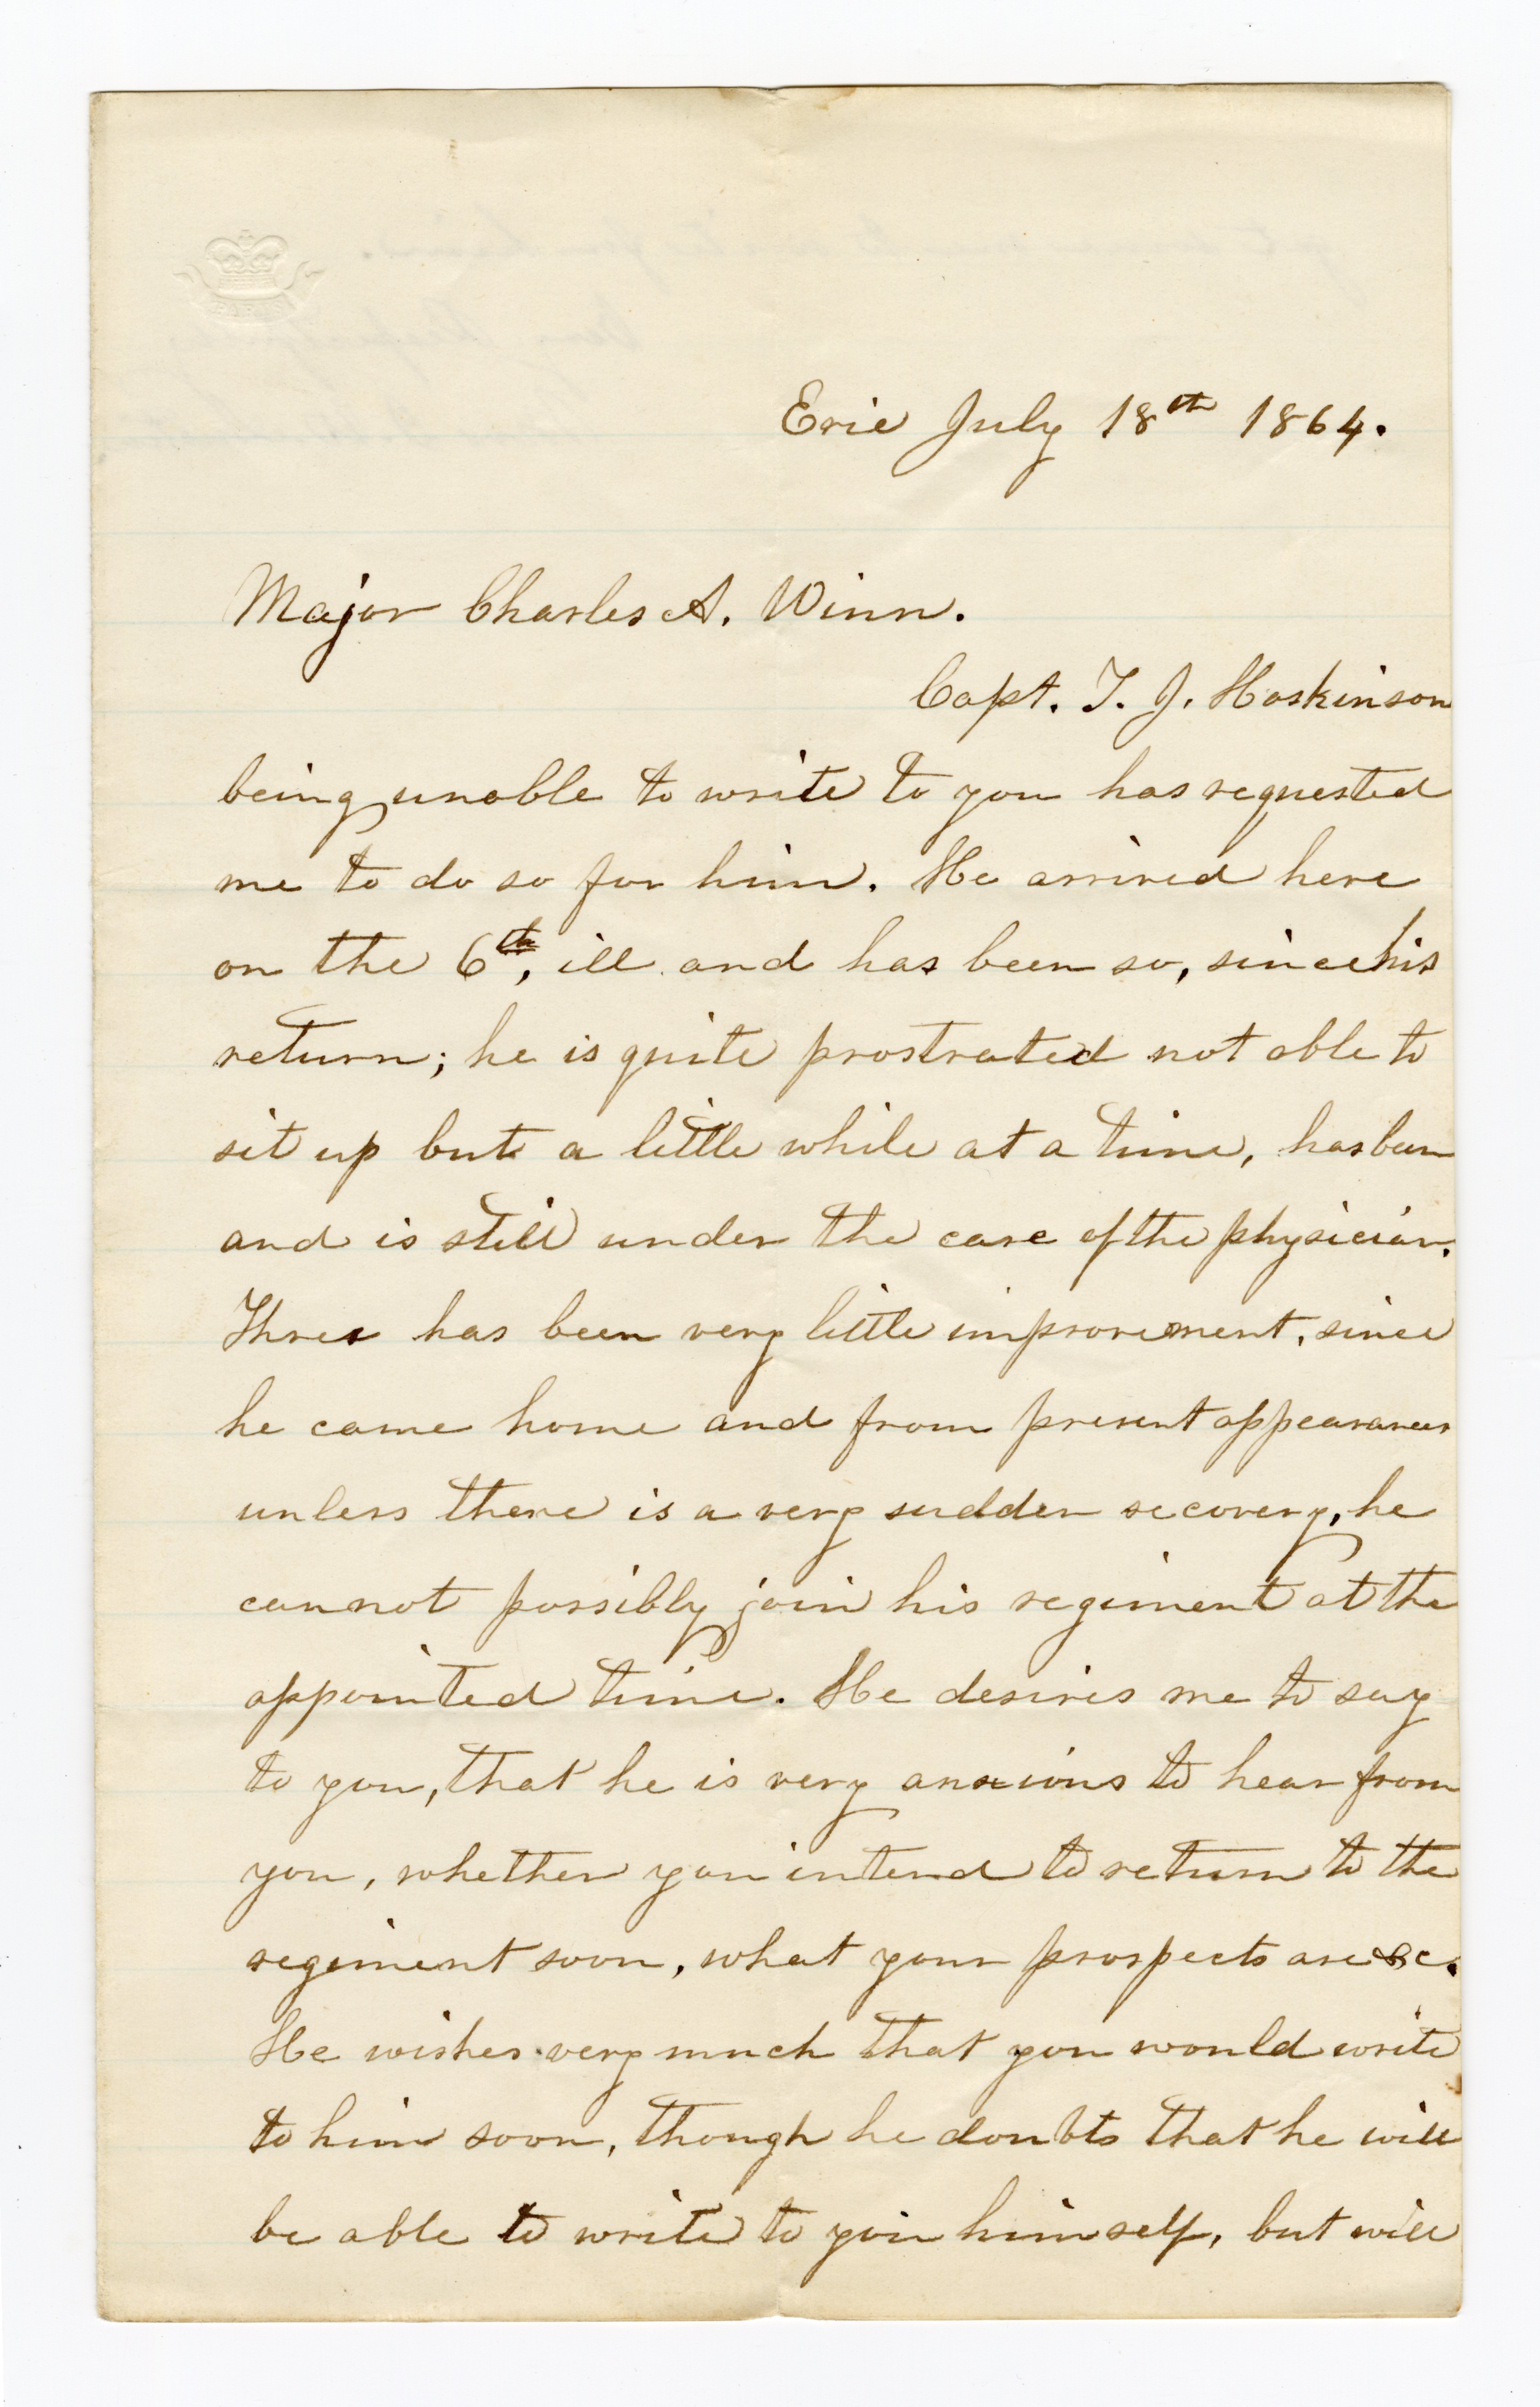 Erie July 18th 1864.
Major Charles A. Winn.
Capt. T. J. Hoskinson
being unable to write to you has requested
me to do so for him. He arrived here
on the 6th, ill and has been so, since his
return; he is quite prostrated not able to
sit up but a little while at a time, has been
and is still under the care of the physician.
Thres has been very little improvement, since
he came home and from present appearances
unless there is a very sudden recovery, he
cannot possibly join his regiment at the
appointed time. He desires me to say
to you, that he is very anxious to hear from
you, whether you intend to return to the
regiment soon, what your prospects are &c.
He wishes very much that you would write
to him soon, though he doubts that he will
be able to write to you himself, but will